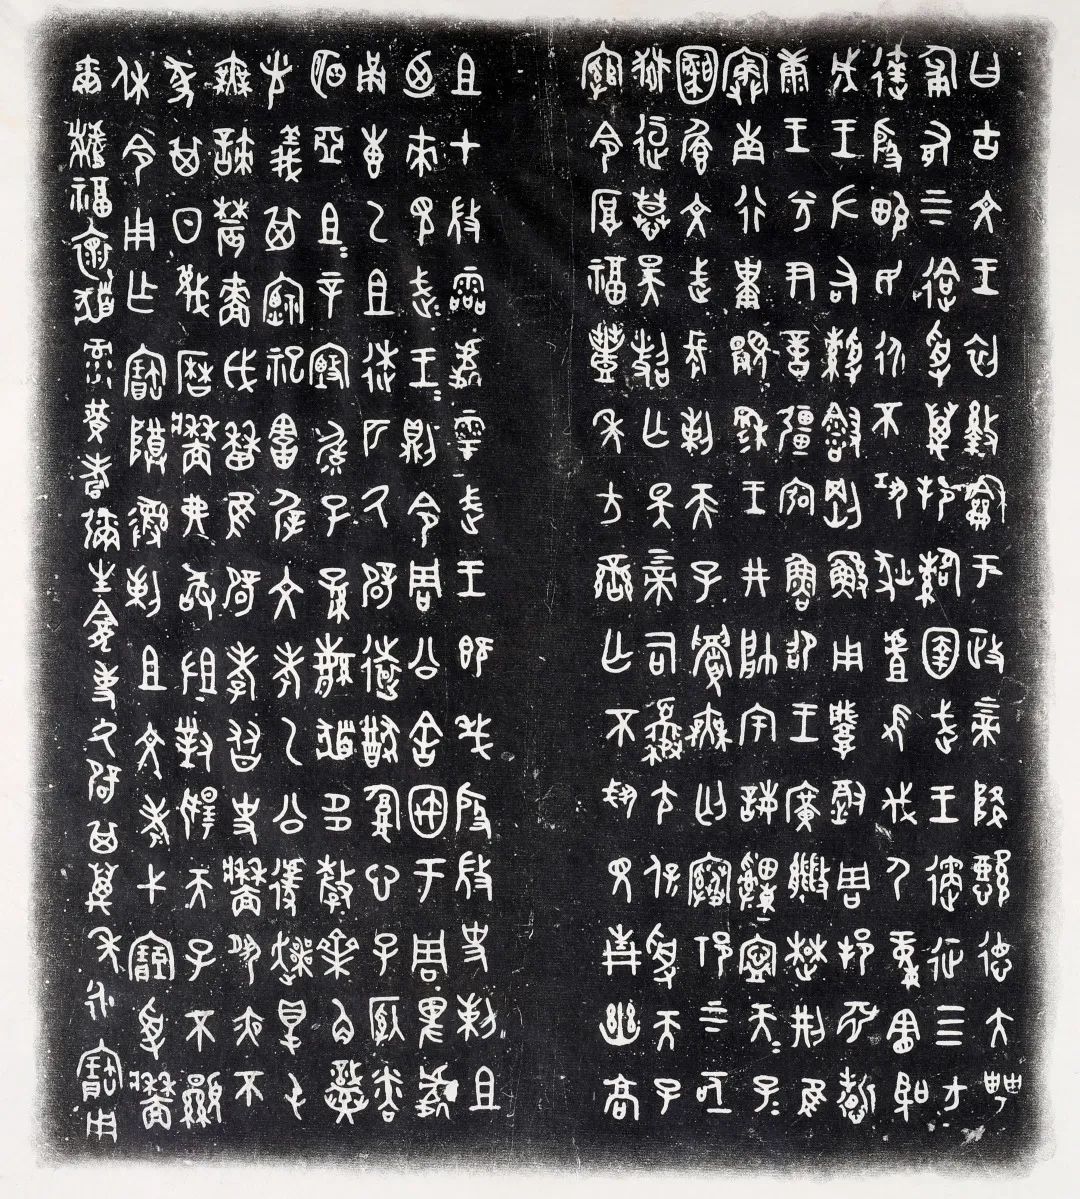 曰古文王初盭龢于政上帝降懿德大甹
匍有上下迨受萬邦䚄圉武王遹征四方
達殷畯民永不巩狄虘髟伐尸童憲聖
成王左右綬剛鯀用肇徹周邦淵哲
康王兮尹億彊宏魯邵王廣楚荊隹
寏南行祗顯穆王井帥宇誨申寧天子天子
文武長剌天子眉無匄寋祁上下亟
獄桓慕昊照亡斁上帝司夒尢保受天子
綰令厚福豐年方蠻亡不踝見青幽高
且才微靈處雩武王既殷微史剌且
廼來見武王武王則令周公舍㝢于周卑處
甬叀乙且逨匹厥辟遠猷腹心子粦
明亞且且辛毓子孫繁福多釐齊角熾光
義其禋祀㝬遅文考乙公遽爽得屯
無諫農嗇戉曆隹辟孝友史墻夙夜不
墜其日蔑曆墻弗敢沮對揚天子不顯
休令用乍寶尊彝剌且文考弋寵受墻
爾福懷祿黃耇彌生龕事厥辟其萬年永寶用